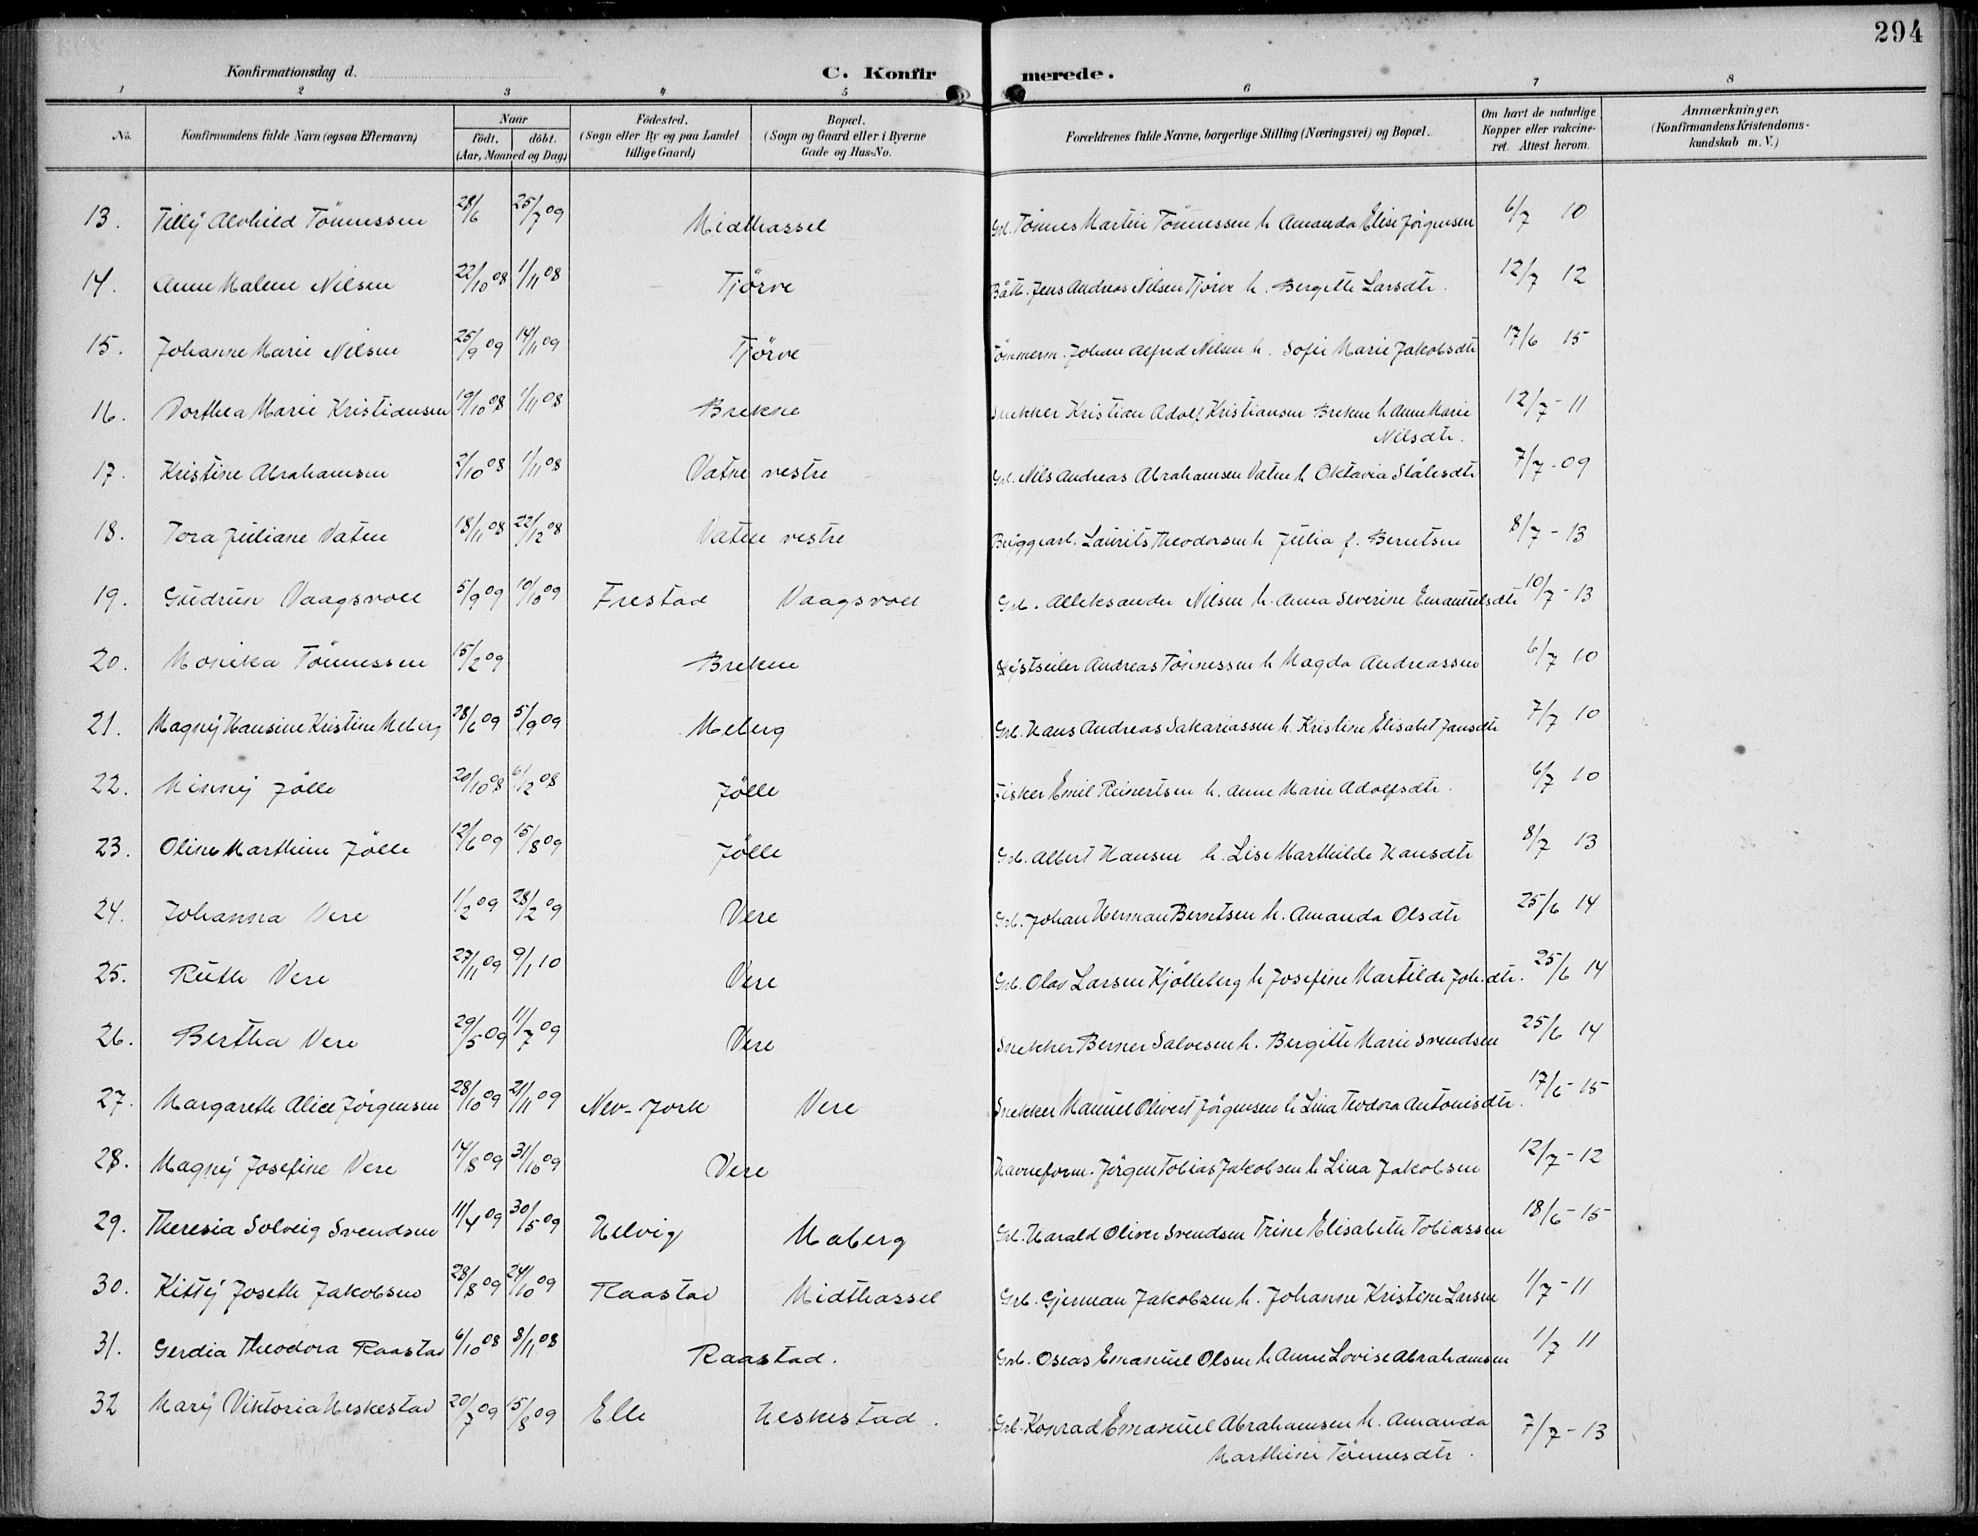 294
Konfirmationsdag d.
C. Konfir merede.
1 2 3 4 5 6 7 8
No. Konfirmandens fulde Navn (ogsaa Efternavn) Naar født, døbt. (Aar, Maaned og Dag) Fødested. (Sogn eller By og paa Landet tillige Gaard) Bopæl. (Sogn og Gaard eller i Byerne Gade og Hus-No. Forældrenes fulde Navne, borgerlige Stilling (Næringsvei) og Bopæl. Om havt de naturlige Kopper eller vakcineret. Attest herom. Anmærkninger. (Konfirmandens Kristendomskundskab m. V.)
13. Tilly Alvhild Tönnessen 28/6 25/7 09 Midthassel Grl. Tönnes Martin Tönnessen h. Amanda Elise Jörgensen 6/7 10
14. Anne Malene Nilsen 22/10 08 1/11 08 Tjörve Jens Andreas Nilsen Tjörve h. Bergitte Larsdtr. 12/7 12
15. Johanne Marie Nilsen 25/9 09 14/11 09 Tjörve Tömmerm. Johan Alfred Nilsen h. Sofie Marie Jakobsdtr 17/6 15
16. Dorthea Marie Kristiansen 19/10 08 1/11 08 Brekne Snekker Kristian Adolf Kristiansen Brekne h. Anne Marie 12/7 - 11
Nilsdtr.
17. Kristine Abrahamsen 2/10 08 1/11 08 Vatne vestre Grl. Nils Andreas Abrahamsen Vatne h. Oktavia Stålesdtr 7/7 - 09
18. Tora Juliane Vatne 18/11 08 22/12 08 Vatne vestre Bryggearb. Laurits Theodorsen h. Julia f. Berntsen 8/7 - 13
19. Gudrun Vaagsvoll 5/9 09 10/10 09 Frestad Vaagsvoll Grb. Alleksander Nilsen h. Anna Severine Emanuelsdtr 10/7 - 13
20. Monika Tönnessen 15/2 09 Brekne Andreas Tönnessen h. Magda Andreassen 6/7 10
21. Magny Hansine Kristine Meberg 28/6 09 5/9 09 Meberg Grb. Hans Andreas Sakariassen h. Kristine Elisabet Jansdtr 7/7 10
22. Minny Jölle 20/10 08 6/12 08 Jölle Fisker Emil Reinertsen h. Anne Marie Adolfsdtr. 6/7 10
23. Oline Marthine Jölle 12/6 09 15/8 09 Jölle Grb. Albert Hansen h. Lise Marthilde Hansdtr 8/7 13
24. Johanna Vere 1/2 09 28/2 09 Vere Grb. Johan Herman Berntsen h. Amanda Olsdtr 25/6 14
25. Ruth Vere 27/11 09 9/1 10 Vere Grb. Olav Larsen Kjölleberg h. Josefine Martilde Joh.dtr. 25/6 14
26. Bertha Vere 29/5 09 11/7 09 Vere Snekker Berner Salvesen h. Birgitte Marie Svendsen 25/6 14
27. Margareth Alice Jörgensen 28/10 09 21/11 09 Nev-Jork Vere Snekker Manuel Olivert Jörgensen h. Lina Teodora Antonisdtr. 17/6 - 15
28. Magny Josefine Vere 14/8 09 31/10 09 Vere Havneform. Jörgen Tobias Jakobsen h. Lina Jakobsen 12/7 - 12
29. Theresia Solveig Svendsen 11/4 09 30/5 09 Helvig Maberg Grb. Harald Oliver Svendsen Trine Elisabeth Tobiassen 18/6 - 15
30. Kitty Joseth Jakobsen 28/8 09 24/10 09 Raastad Midthassel Grb. Gjerman Jakobsen h. Johanne Kristine Larsen 1/7 - 11
31. Gerdia Theodora Raastad 6/10 08 8/11 08 Raastad. Grb. Oseas Emanuel Olsen h. Anne Lovise Abrahamsen 1/7 11
32 Mary Viktoria Heskestad 20/7 09 15/8 09 Elle Heskestad. Grb. Konrad Emanuel Abrahamsen h. Amanda 7/7 - 13
Marthine Tönnesdtr.